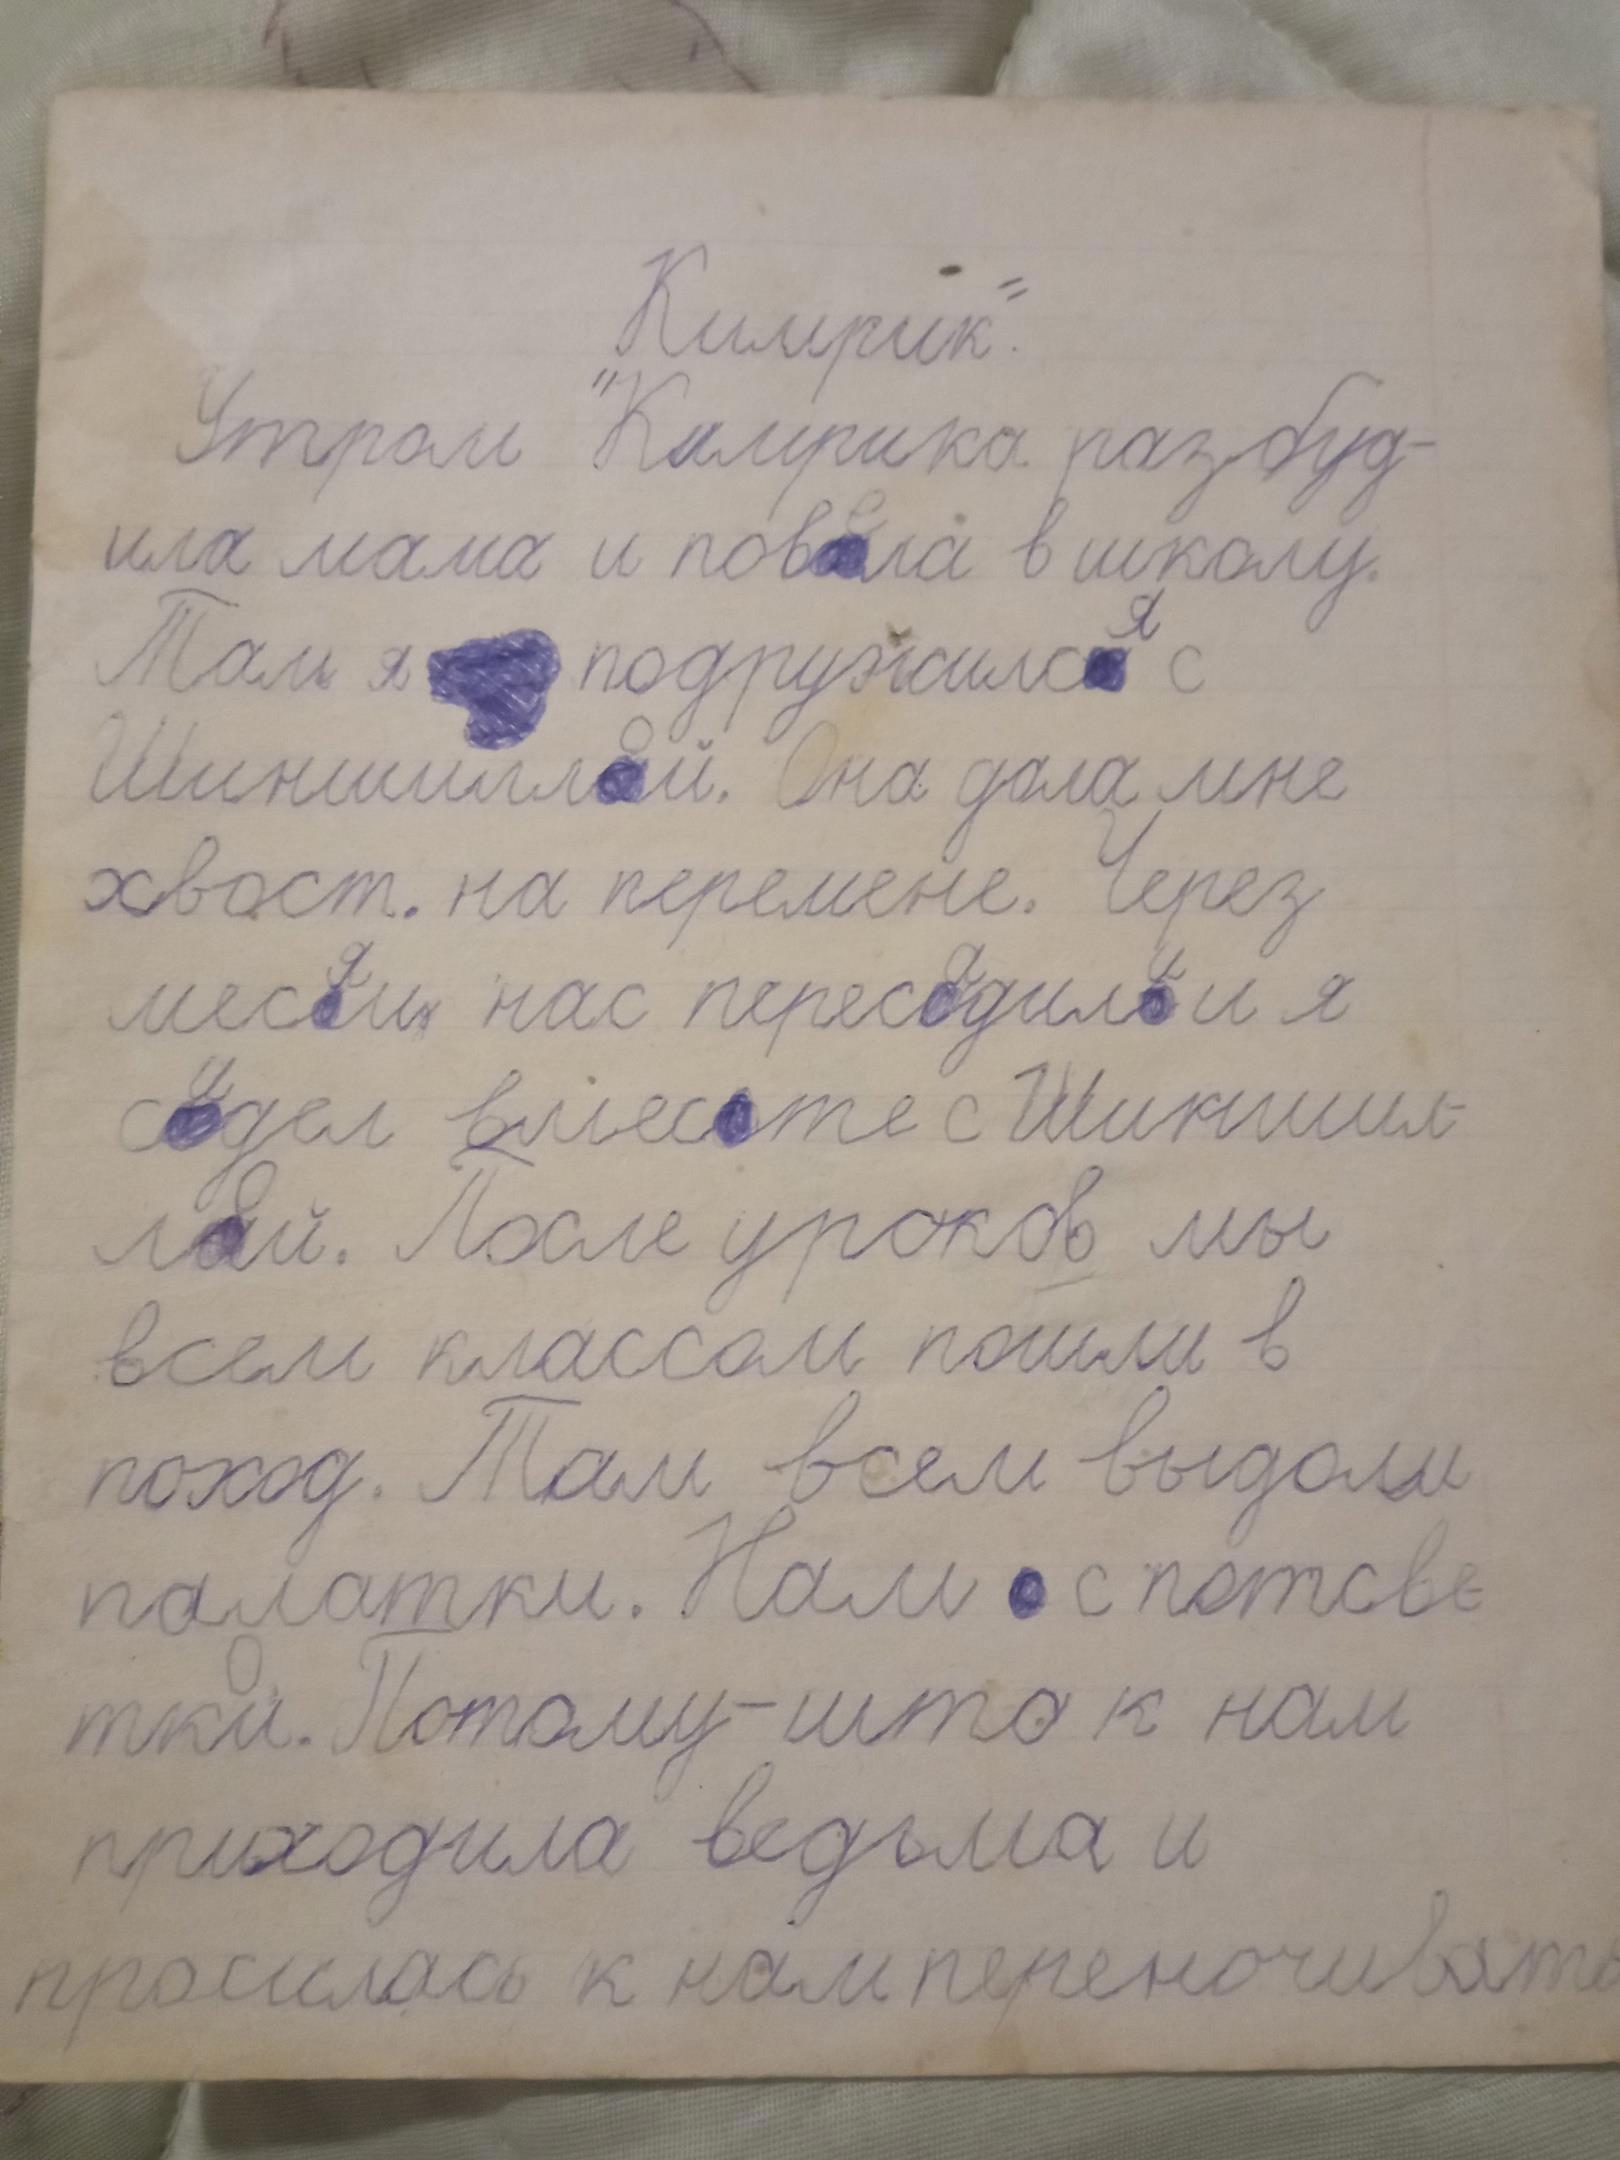 Кимрик".
Утром "Кимрика разбуд-
ила мама и повела в школу.
Там я подружился с
Шиншиллой. Она дала мне
хвост. на перемене. Через
месяц нас пересядили и я
сидел вместе с Шиншил-
лой. После уроков мы
всем классом пошли в
поход. Там всем выдали
палатки. Нам с потсве
ткой. Потому-што к нам
приходила ведьма и
просилась к нам переночивать